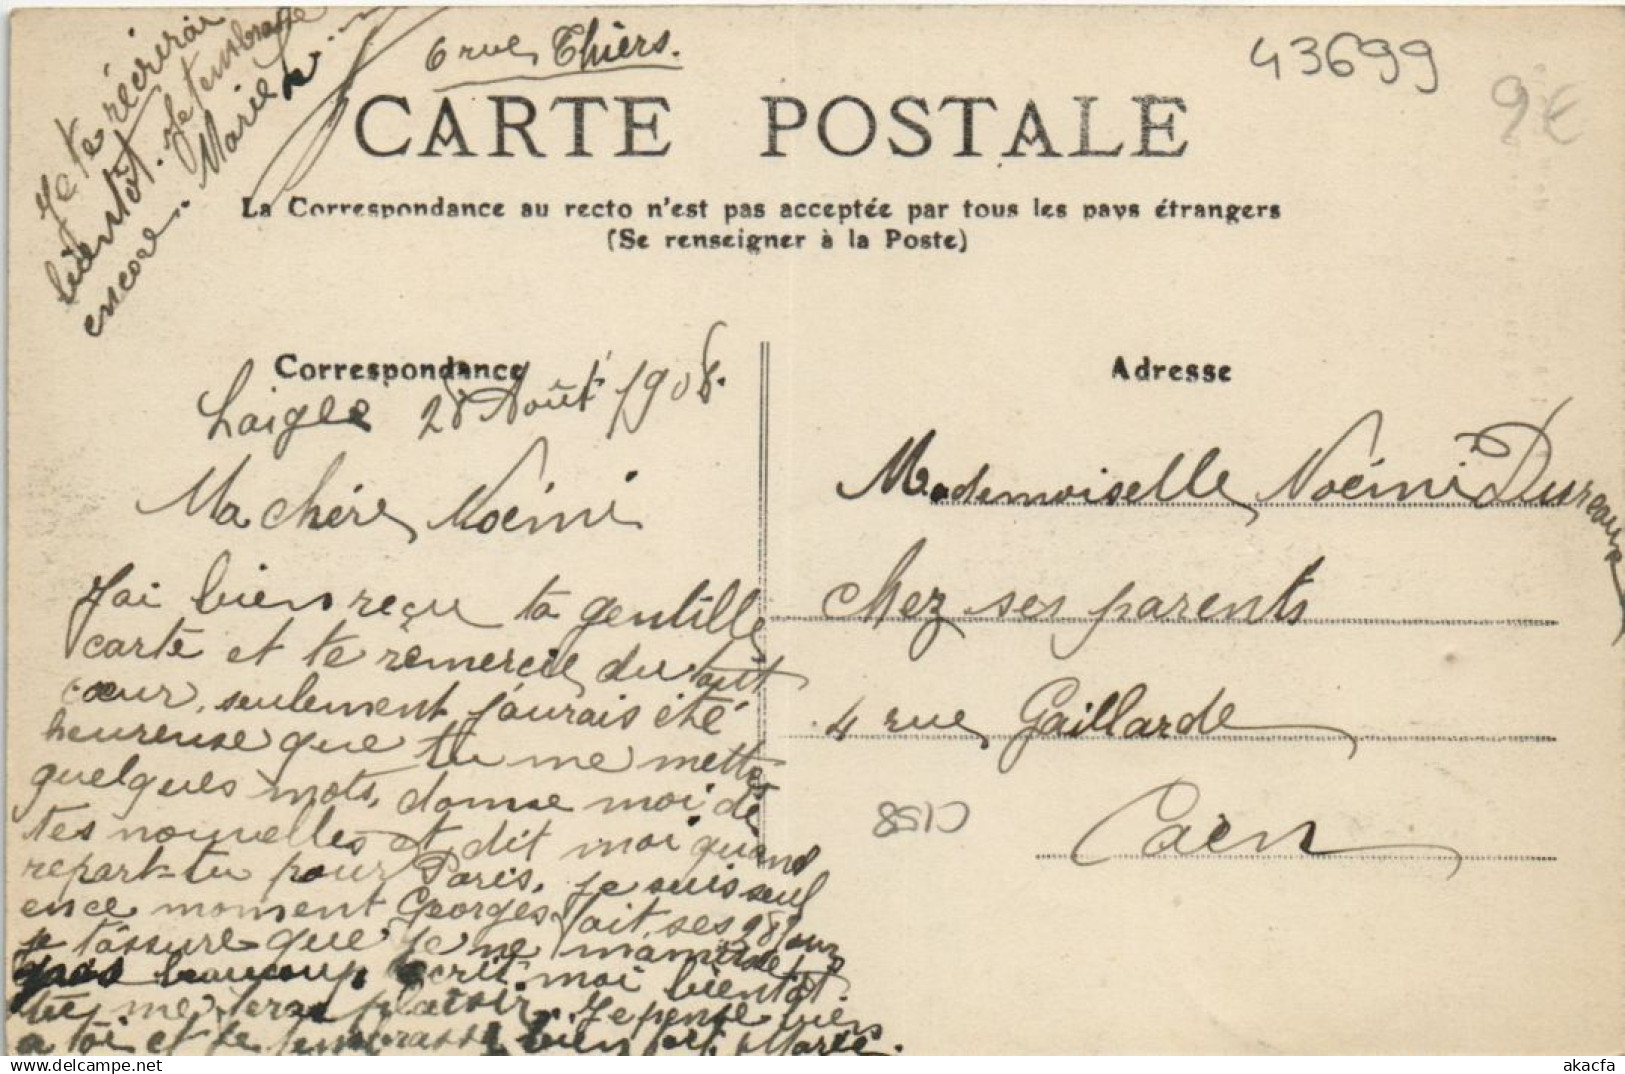 6 rue Thiers.
43699
9€
Je te récrirai
bientôt. Je t'embrasse
encore. Marie
CARTE POSTALE
La Correspondance au recto n'est pas acceptée par tous les pays étrangers
(Se renseigner à la Poste)
Correspondance
Laigle 28 Août 1908.
Ma chère Noémi
J'ai bien reçu ta gentille
carte et te remercie du tout
cœur, seulement j'aurais été
heureuse que tu me mettes
quelques mots, donne moi de
tes nouvelles et dit moi quand
repart-tu pour Paris, je suis seul
en ce moment Georges fait ses 28 jours
je t'assure que je ne
pas beaucoup, écrit-moi bientôt.
tu me feras plaisir. Je pense bien
a toi et je t'embrasse bien fort Marie.
Adresse
Mademoiselle Noémi Dureau
Chez ses parents
4 rue Gaillarde
Caen
C158
akacfa.com